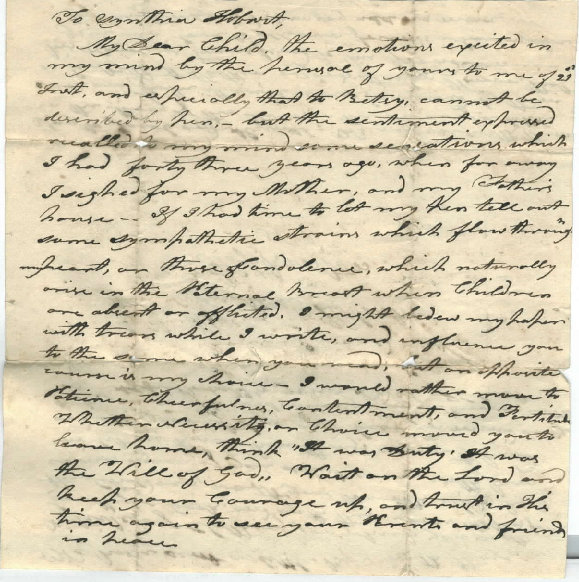 To Synthia Hobart,
My Dear Child, the emotions excited in
my mind by the perusal of yours to me of 23d
Inst, and especially that to Betsy, cannot be
described by pen, — but the sentiment expressed
recalled to my mind some sensations which
I had forty three years ago, when far away
I sighed for my Mother, and my Father's
house — If I had time to let my pen tell out
some sympathetic strains which flow through
my heart, or those of Condolence, which naturally
arise in the Paternal Breast when Children
are absent or afflicted, I might bedew my paper
with tears while I write, and influence you
to the same when you read; but an opposite
course is my choice — I would rather move to
Patience, Cheerfulness, Contentment, and Fortitude
Whether Necessity, or Choice moved you to
leave home, think "It was Duty" It was
the Will of God,, Wait on the Lord and
keep your Courage up, and trust in His
time again to see your Parents and friends
in peace